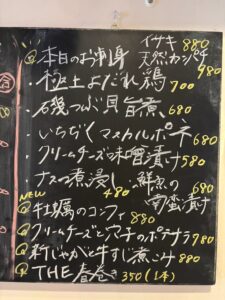 本日のお刺身 イサキ 880
天然カンパチ 980
・極上よだれ鶏 700
・磯つぶ貝旨煮 680
・いちじくマスカルポーネ 680
・クリームチーズの味噌漬け 580
・ナスの煮浸し 480 ・鮮魚の南蛮漬け 690
NEW
牡蠣のコンフィ 880
クリームチーズとアナゴのポテサラ 780
新じゃがと牛すじ煮こみ 880
THE春巻き 350(1本)